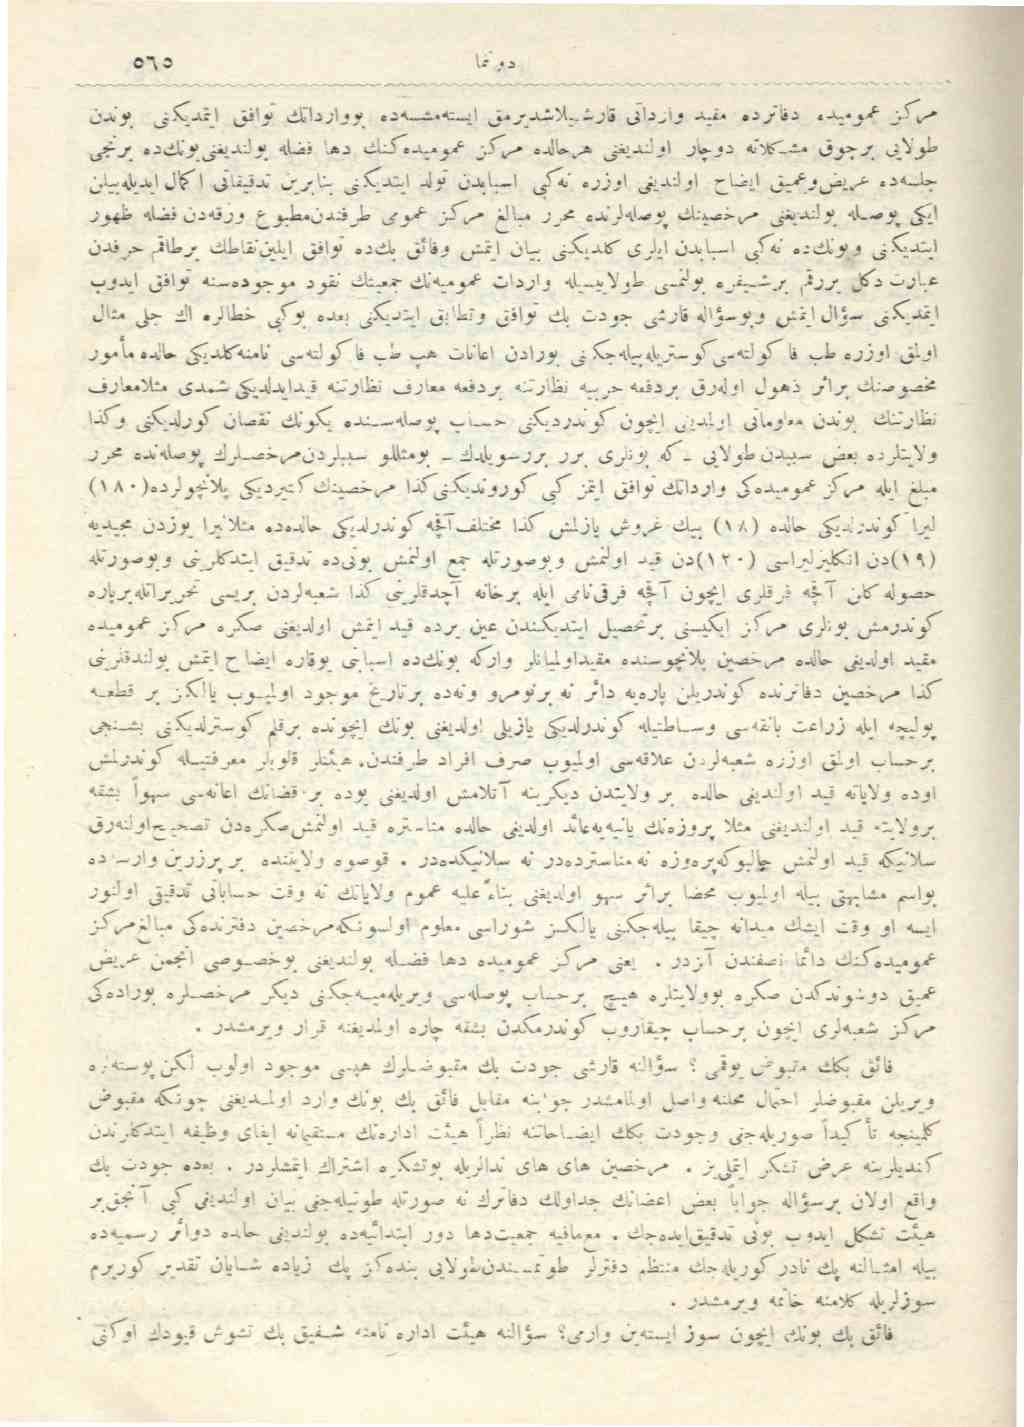 دوننما ٥٦٥
مركز عموميده دفاترده مقيد وارداتى قارشيلاشديرمق ايسته‌مشسه‌ده بووارداتك توافق ايتمديكنى بوندن
طولايى برچوق مشكلاته دوچار اولنديغنى هرحالده مركز عموميده‌كنك دها فضله بولنديغنى بونك‌ده برنجى
جلسه‌ده عريض‌وعميق ايضاح اولنديغى اوزره نه‌كبى اسبابدن تولد ايتديكنى بنابرين تدقيقاتى اكمال ايديله‌بيلن
ايكى پوصله بولنديغنى مرخصينك پوصله‌لرنده محرر مبالغ مركز عمومى طرفندن‌مطبوع ورقه‌دن فضله ظهور
ايتديكنى وبونك‌ده نه‌كبى اسبابدن ايلرى كلديكنى بيان ايتمش وفائق بك‌ده توافق ايلين‌نقاطك برطاقم حرفدن
عبارت دكل بررقم برشيفره بولنمسى طولاييسيله واردات عموميه‌نك جمعيتك نقود موجوده‌سنه توافق ايدوب
ايتمديكنى سؤال ايتمش وبوسؤاله قارشى جودت بك توافق وتطابق ايتديكنى بعده بوكبى خطالره اك جلى مثال
اولمق اوزره طب فاكولته‌سى‌كوستريله‌بيله‌جكنى بورادن اعانات هپ طب فاكولته‌سى نامنه‌كلديكى حالده مأمور
مخصوصنك براثر ذهول اوله‌رق بردفعه حربيه نظارتنه بردفعه معارف نظارتنه قيدايدلديكى شمدى مثلامعارف
نظارتنك بوندن معلوماتى اولمديغى ايچون كوندرديكنى حساب پوصله‌سنده يكونك نقصان كورلديكنى وكذا
ولايتلرده بعض سببدن طولايى ــ كه بونلرى برر بررسويلدك ــ بومثللو سببلردن‌مرخصلرك پوصله‌نده محرر
مبلغ ايله مركز عموميده‌كى وارداتك توافق ايتمز كبى كوروندیكنى‌كذا مرخصينك كتيرديكى پلانچولرده(١٨٠)
ليرا كوندرلديكى حالده (١٨) بيك غروش يازلمش كذا مختلف‌آقچه كوندرلديكى حالده‌ده مثلاليرا يوزدن مجيديه
(١٩)دن انكليزليراسى (١٢٠)دن قيد اولنمش وبوصورتله جمع اولنمش بونى‌ده تدقيق ايتدكلرينى وبوصورتله
حصوله كلن آقچه فرقلرى ايچون آقچه فرقى‌نامى ايله برخانه آچدقلرينى كذا شعبه‌لردن بريسى تحريراتله‌برپاره
كوندرمش بونلرى مركز ايكيسنى برتحصيل ايتديكندن عين يرده قيد ايتمش اولديغنى صكره مركز عموميده
مقيد اولديغى حالده مرخصين پلانچوسنده مقيداولميانلر واركه بونك‌ده اسبابنى يوقاره ايضاح ايتمش بولندقلرينى
كذا مرخصين دفاترنده كوندريلن پاره‌يه دائر نه برنومرو ونه‌ده برتاريخ موجود اولميوب يالكز بر قطعه
پوليچه ايله زراعت بانقه‌سى وساطتيله كوندرلديكى يازيلى اولديغنى بونك ايچونده برقلم كوسترلديكنى بشنجى
برحساب اولمق اوزره شعبه‌لردن علاقه‌سى اولميوب صرف افراد طرفندن، هيئتلر قلوبلر معرفتيله كوندرلمش
اوده ولاياته قيد اولنديغى حالده بر ولايتدن ديكرينه آتلامش اولديغنى بوده بر قضانك اعانه‌سى سهواً بشقه
برولايته قيد اولنديغنى مثلا پروزه‌نك يانيه‌يه‌عائد اولديغى حالده مناستره قيد اولنمش‌صكره‌دن تصحيح‌اولنه‌رق
سلانيكه قيد اولنمش چالبوكه‌پره‌وزه نه‌مناسترده‌در نه سلانيكده‌در . قوصوه ولايتنده بر پرزرين وارسه‌ده
بواسم مشابهتى بيله اولميوب محضا براثر سهو اولديغنى بناءً‌عليه عموم ولاياتك نه وقت حساباتى تدقيقى اولنور
ايسه او وقت ايشك ميدانه چيقا بيله‌جكنى يالكز شوراسى معلوم اولسونكه‌مرخصين دفترنده‌كى مبالغ‌مركز
عموميده‌كنك دائما نصفندن آزدر . يعنى مركز عموميده دها فضله بولنديغنى بوخصوصى انجمن عريض
عميق دوشوندكدن صكره بوولايتلره هيچ برحساب پوصله‌سى ويريله‌ميه‌جكنى ديكر مرخصلره بوراده‌كى
مركز شعبه‌لرى ايچون برحساب چيقاروب كوندرمكدن بشقه چاره اولمديغنه قرار ويرمشدر .
فائق بكك مقبوض يوقمى ؟ سؤالنه قارشى جودت بك مقبوضلرك هپسى موجود اولوب لكن پوسته‌يه
ويريلن مقبوضلر احتمال محلنه واصل اولمامشدر جوابنه مقابل فائق بك بونك وارد اولمديغنى چونكه مقبوض
كلمينجه تأكيداً صوريله‌جغنى وجودت بكك ايضاحاتنه نظراً هيئت اداره‌نك مستقيمانه ايفاى وظيفه ايتدكلرندن
كنديلرينه عرض تشكر ايتملى‌يز . مرخصين هاى هاى ندالريله بوتشكره اشتراك ايتمشلردر . بعده جودت بك
واقع اولان برسؤاله جواباً بعض اعضانك جداولك دفاترك نه صورتله طوتيله‌جغنى بيان اولنديغى كبى آنجق‌بر
هيئت تشكل ايدوب بونى تدقيق‌ايده‌جك . مع‌مافيه جمعيت‌دها دور ابتدائيه‌ده بولنديغى حالده دوائر رسميه‌ده
بيله امثالنه پك نادر كوريله‌جك منتظم دفترلر طوتمسندن‌طولايى بنده‌كز پك زياده شايان تقدير كوريرم
سوزلريله كلامنه خاتمه ويرمشدر .
فائق بك بونك ايچون سوز ايسته‌ين وارمى؟ سؤالنه هيئت اداره نامنه شفيق بك تشوش قيودك اوكنى